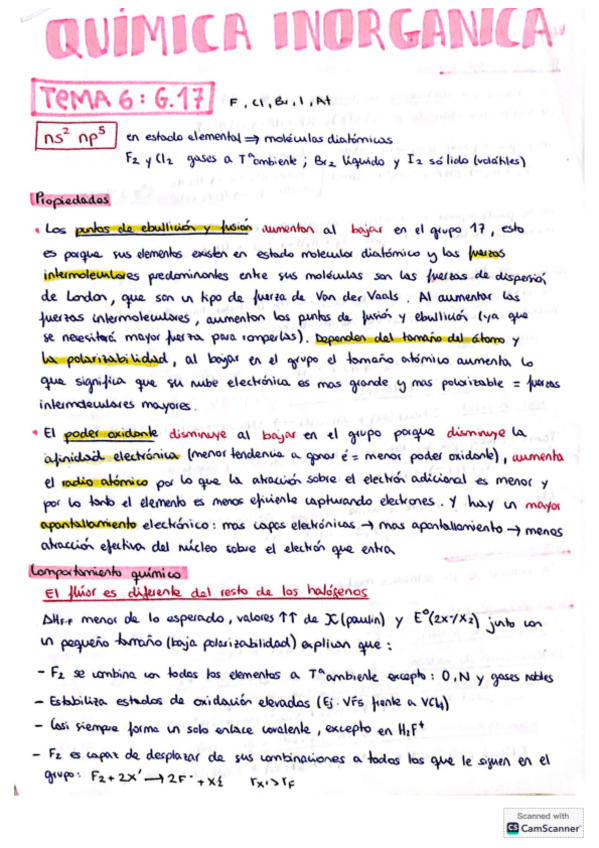 QUÍMICA INORGANICA
TEMA 6: G.17
F, Cl, Br, I, At
ns² np⁵ en estado elemental ⇒ moléculas diatómicas
F₂ y Cl₂ gases a Tª ambiente ; Br₂ líquido y I₂ sólido (volátiles)
Propiedades
• Los puntos de ebullición y fusión aumentan al bajar en el grupo 17, esto
es porque sus elementos existen en estado molecular diatómico y las fuerzas
intermoleculares predominantes entre sus moléculas son las fuerzas de dispersión
de London, que son un tipo de fuerza de Van der Vaals. Al aumentar las
fuerzas intermoleculares, aumentan los puntos de fusión y ebullición (ya que
se necesitará mayor fuerza para romperlas). Dependen del tamaño del átomo y
la polarizabilidad, al bajar en el grupo el tamaño atómico aumenta lo
que significa que su nube electrónica es mas grande y mas polarizable = fuerzas
intermoleculares mayores.
• El poder oxidante disminuye al bajar en el grupo porque disminuye la
afinidad electrónica (menor tendencia a ganar é = menos poder oxidante), aumenta
el radio atómico por lo que la atracción sobre el electrón adicional es menor y
por lo tanto el elemento es menos eficiente capturando electrones. Y hay un mayor
apantallamiento electrónico: mas capas electrónicas → mas apantallamiento → menos
atracción efectiva del núcleo sobre el electrón que entra
Comportamiento químico
El flúor es diferente del resto de los halógenos
ΔH_F-F menor de lo esperado, valores ↑↑ de X (paulin) y E⁰(2x⁻/X₂) junto con
un pequeño tamaño (baja polarizabilidad) explican que:
- F₂ se combina con todos los elementos a Tª ambiente excepto: O, N y gases nobles
- Estabiliza estados de oxidación elevados (Ej. VF₅ frente a VCl₄)
- Casi siempre forma un solo enlace covalente, excepto en H₂F⁺
- F₂ es capaz de desplazar de sus combinaciones a todos los que le siguen en el
grupo: F₂ + 2X⁻ → 2F⁻ + X₂ r_X⁻ > r_F
Scanned with
CS CamScanner